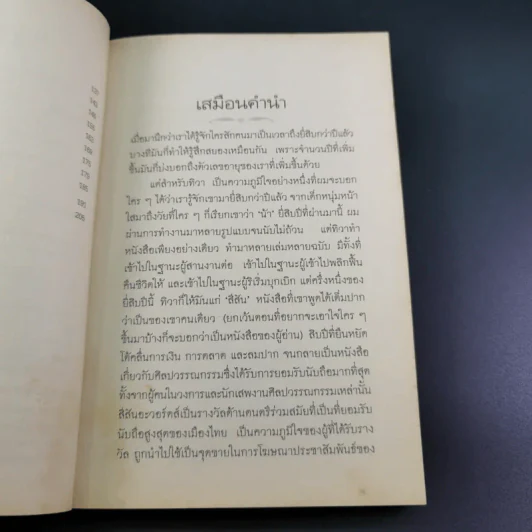 ๕๓๐
๕๔๐
๕๕๐
๕๖๐
๕๖๔
๕๗๐
๕๗๕
๕๘๐
๕๙๐
๖๐๖
เสมือนคำนำ
เมื่อมานึกว่าเราได้รู้จักใครสักคนมาเป็นเวลาถึงยี่สิบกว่าปีแล้ว
บางทีมันก็ทำให้รู้สึกสยองเหมือนกัน เพราะจำนวนปีที่เพิ่ม
ขึ้นมันก็บ่งบอกถึงตัวเลขอายุของเราที่เพิ่มขึ้นด้วย
แต่สำหรับทิวา เป็นความภูมิใจอย่างหนึ่งที่ผมจะบอก
ใคร ๆ ได้ว่าเรารู้จักเขามายี่สิบกว่าปีแล้ว จากเด็กหนุ่มหน้า
ใสมาถึงวัยที่ใคร ๆ ก็เรียกเขาว่า 'น้า' ยี่สิบปีที่ผ่านมานี้ ผม
ผ่านการทำงานมาหลายรูปแบบจนนับไม่ถ้วน แต่ทิวาทำ
หนังสือเพียงอย่างเดียว ทำมาหลายเล่มหลายฉบับ มีทั้งที่
เข้าไปในฐานะผู้สานงานต่อ เข้าไปในฐานะผู้เข้าไปพลิกฟื้น
คืนชีวิตให้ และเข้าไปในฐานะผู้ริเริ่มบุกเบิก แต่ครึ่งหนึ่งของ
ยี่สิบปีนี้ ทิวาก็ให้มันแก่ 'สีสัน' หนังสือที่เขาพูดได้เต็มปาก
ว่าเป็นของเขาคนเดียว (ยกเว้นตอนที่อยากจะเอาใจใคร ๆ
ขึ้นมาบ้างก็จะบอกว่าเป็นหนังสือของผู้อ่าน) สิบปีที่ยืนหยัด
โต้คลื่นการเงิน การตลาด และลมปาก จนกลายเป็นหนังสือ
เกี่ยวกับศิลปวรรณกรรมซึ่งได้รับการยอมรับนับถือมากที่สุด
ทั้งจากผู้คนในวงการและนักเสพงานศิลปวรรณกรรมเหล่านั้น
สีสันอะวอร์ดส์เป็นรางวัลด้านดนตรีร่วมสมัยที่เป็นที่ยอมรับ
นับถือสูงสุดของเมืองไทย เป็นความภูมิใจของผู้ที่ได้รับราง
วัล ถูกนำไปใช้เป็นจุดขายในการโฆษณาประชาสัมพันธ์ของ